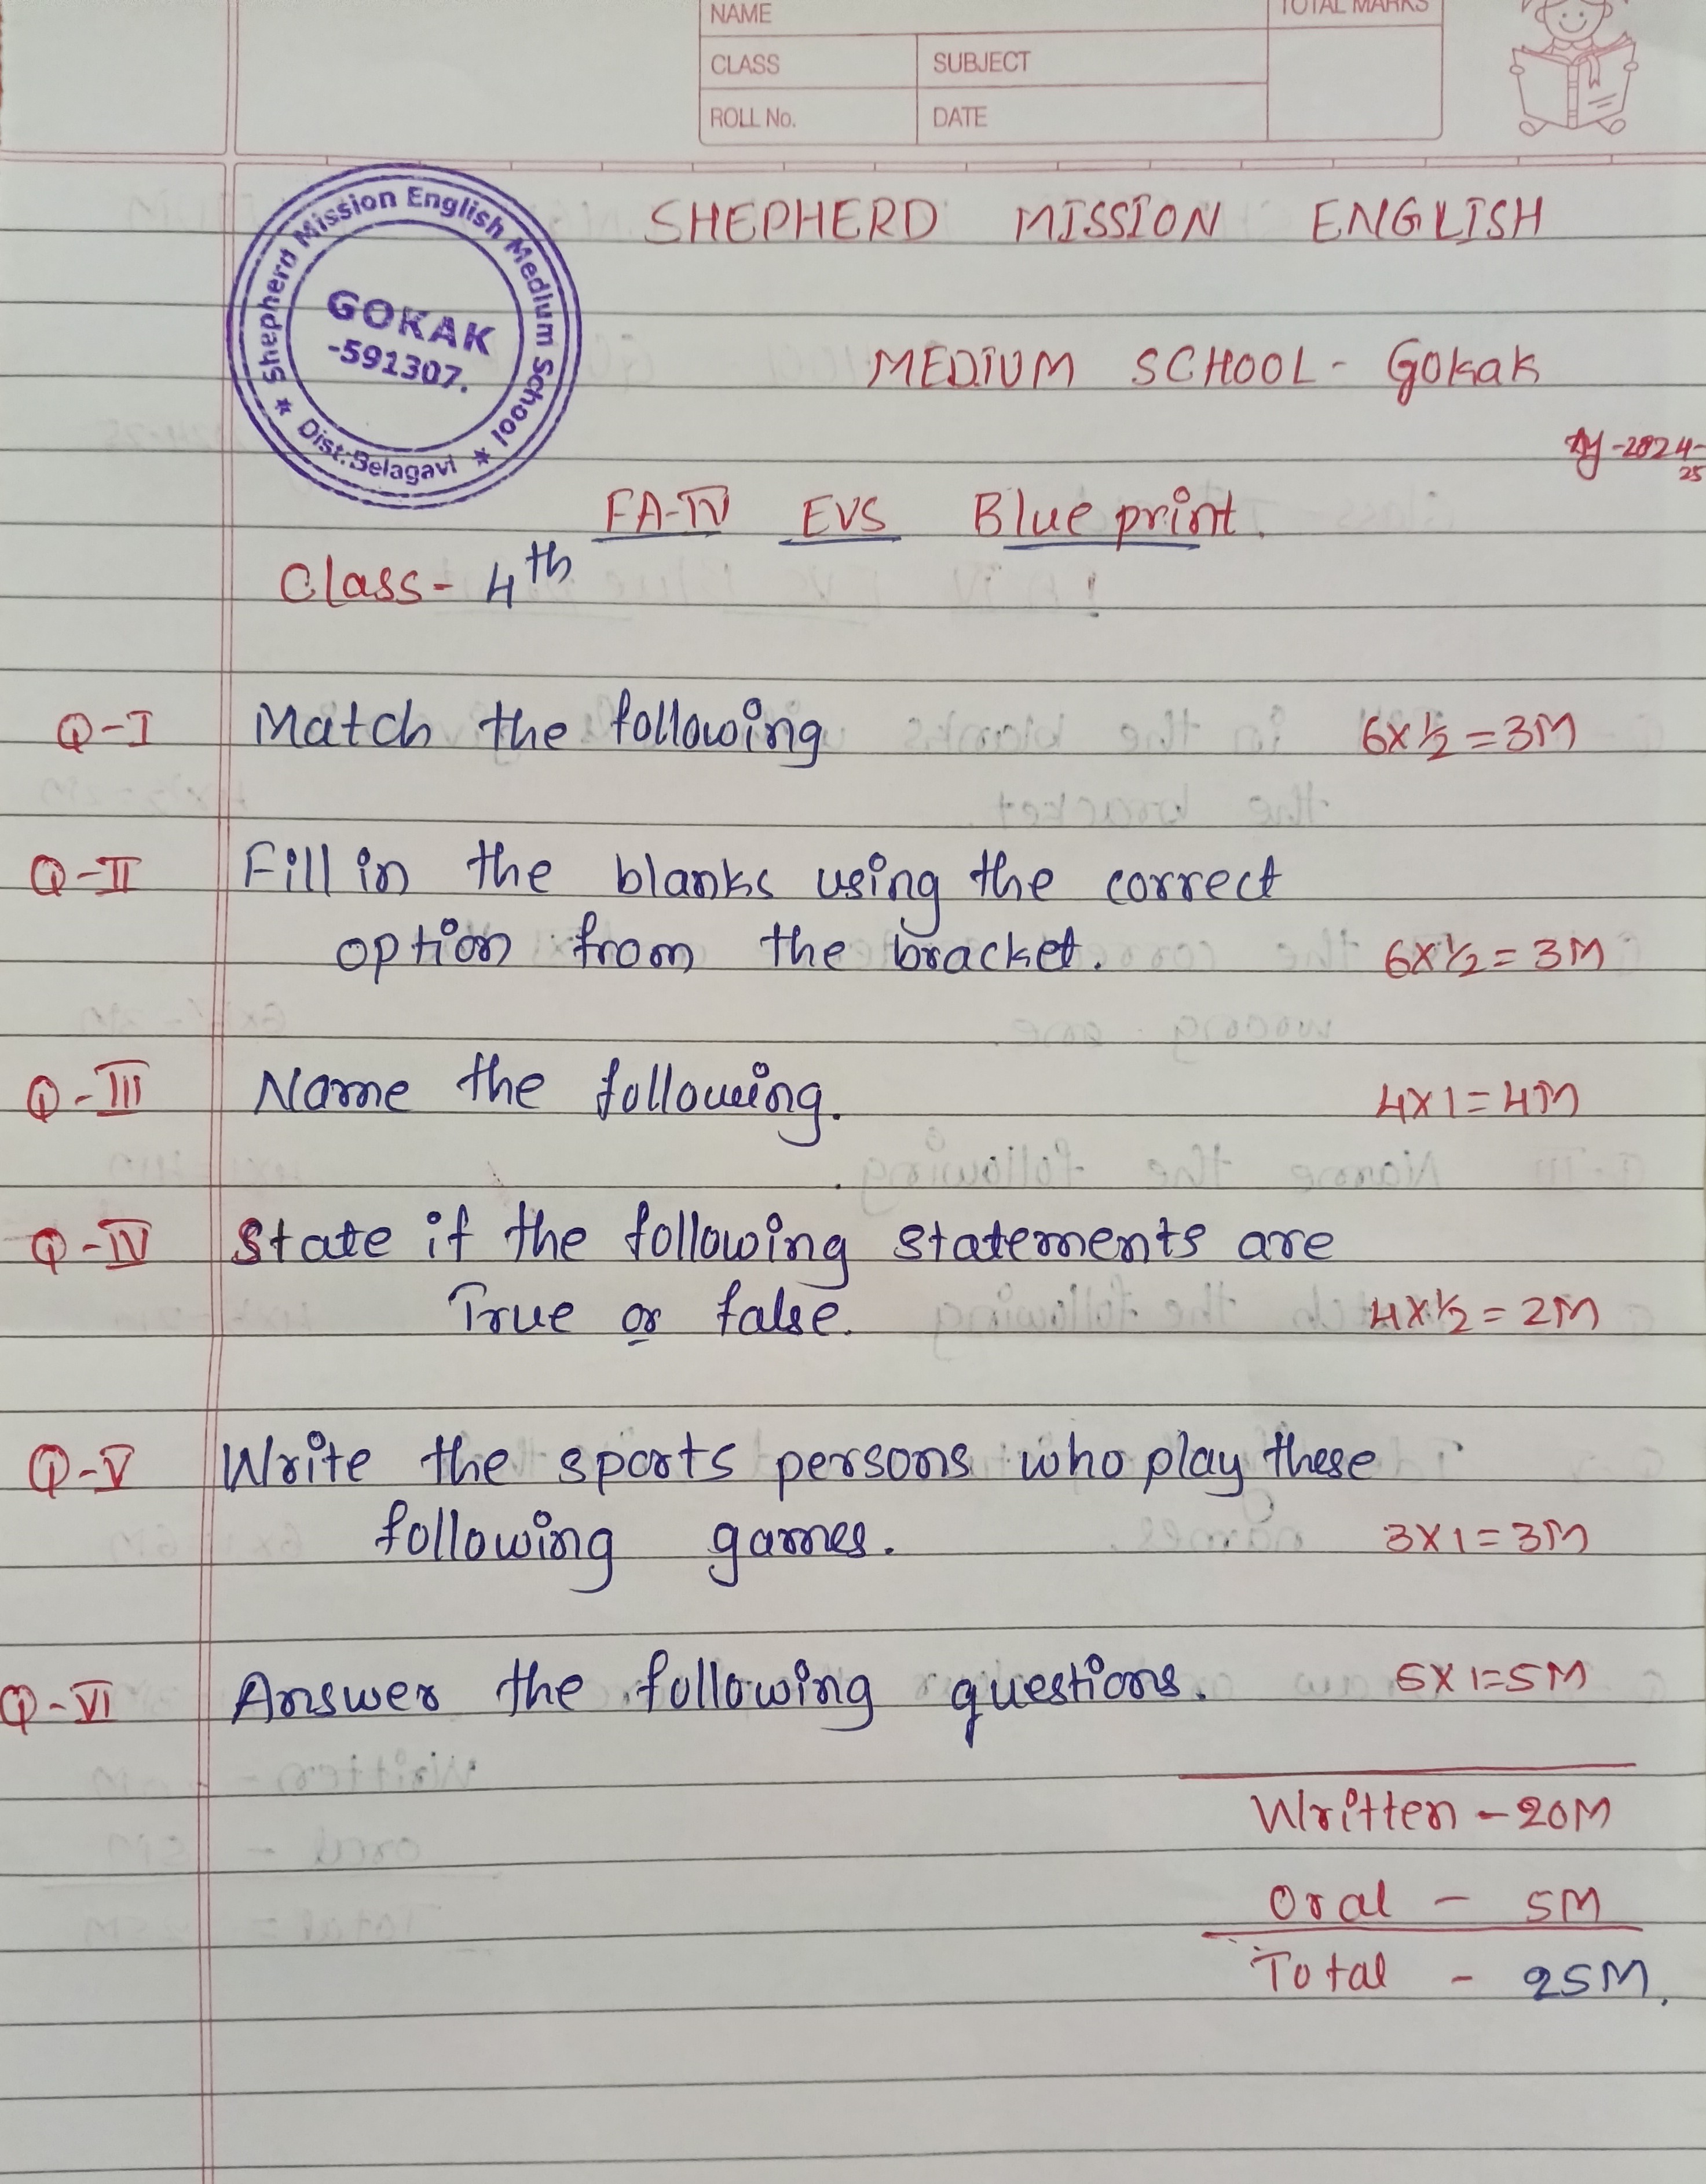 NAME
TOTAL MARKS
CLASS
SUBJECT
ROLL No.
DATE
Shepherd Mission English Medium School
GOKAK
-591307.
Dist:Belagavi
SHEPHERD MISSION ENGLISH
MEDIUM SCHOOL - Gokak
Ay-2024-
25
FA-IV EVS Blue print.
Class- 4th
Q-I Match the following 6x½=3M
Q-II Fill in the blanks using the correct
option from the bracket. 6x½=3M
Q-III Name the following. 4x1=4M
Q-IV State if the following statements are
True or false. 4x½=2M
Q-V Write the sports persons who play these
following games. 3x1=3M
Q-VI Answer the following questions. 5x1=5M
Written - 20M
Oral - 5M
Total - 25M.